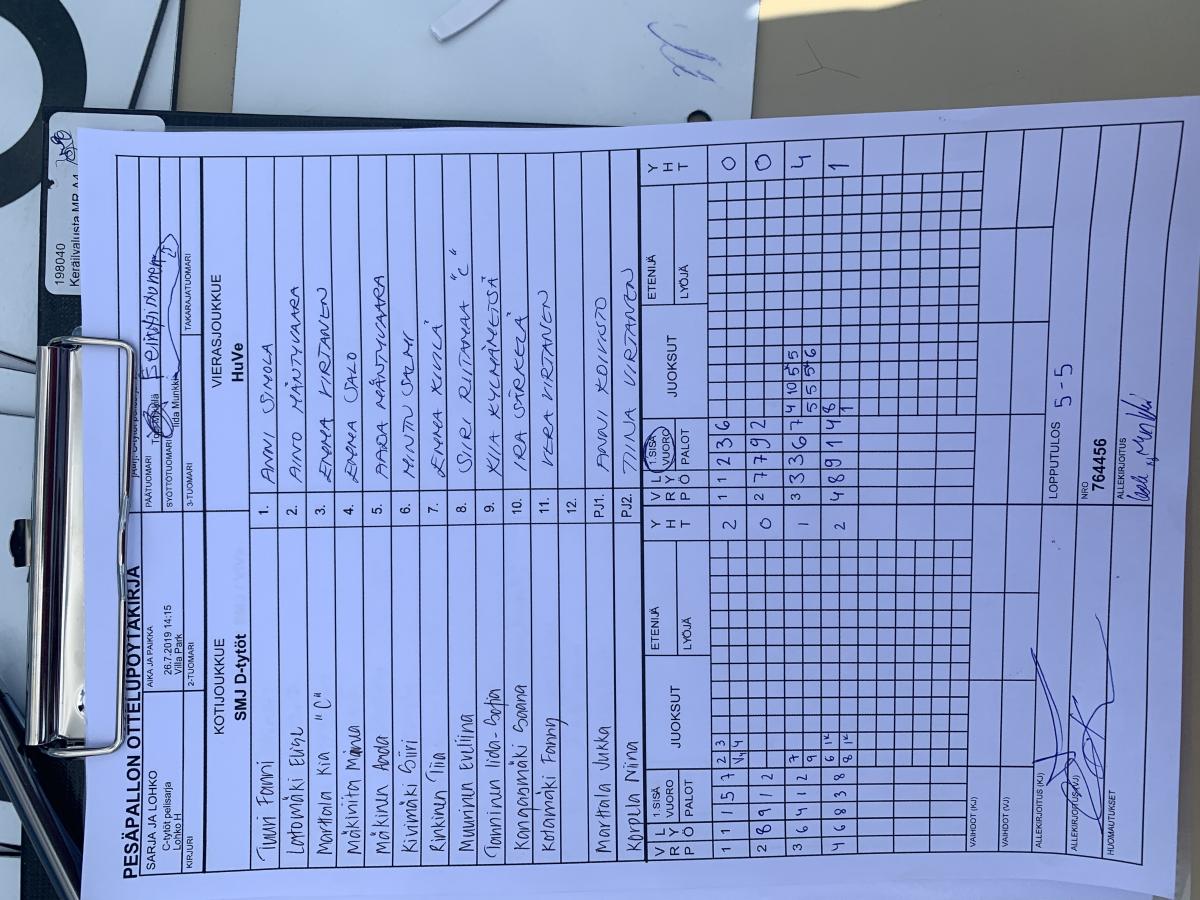 198040
Keräilyalusta MP A4
PESÄPALLON OTTELUPÖYTÄKIRJA
SARJA JA LOHKO
C-tytöt pelisarja
Lohko H
AIKA JA PAIKKA
26.7.2019 14:15
Villa Park
PÄÄTUOMARI
SYÖTTÖTUOMARI
Iida Munkki
KIRJURI
2-TUOMARI
3-TUOMARI
TAKARAJATUOMARI
KOTIJOUKKUE
SMJ D-tytöt
VIERASJOUKKUE
HuVe
Tuuri Fanni 1. ANNI SIMOLA
Latomäki Elise 2. AINO MÄNTYVAARA
Marttala Kia "C" 3. EMMA VIRTANEN
Mäkiniita Minea 4. EMMA SALO
Mäkinen Aada 5. AADA MÄNTYVAARA
Kivimäki Siiri 6. MINTTU SALMI
Rinkinen Tiia 7. EMMA KIVILÄ
Muurinen Eveliina 8. SIIRI RIITAMAA "C"
Tanninen Iida-Sofia 9. KIIA KYLMÄMETSÄ
Kangasmäki Saana 10. IRA SÄRKELÄ
Kotamäki Fanny 11. VERA VIRTANEN
12.
Marttala Jukka PJ1. ANNI KOIVISTO
Korpela Niina PJ2. TIINA VIRTANEN
V R P L Y Ö 1.SISÄ VUORO PALOT JUOKSUT ETENIJÄ LYÖJÄ Y H T V R P L Y Ö 1.SISÄ VUORO PALOT JUOKSUT ETENIJÄ LYÖJÄ Y H T
1 1 1 5 7 2 3 2 1 1 2 3 6 0
4
2 8 9 1 2 0 2 7 7 9 2 0
3 6 4 1 2 7 1 3 3 3 6 7 4 10 5 5 4
9 5 5 5 6
4 6 8 3 8 6 1K 2 4 8 9 1 4 8 1
8 1K 1
VAIHDOT (KJ)
VAIHDOT (VJ)
ALLEKIRJOITUS (KJ)
LOPPUTULOS 5-5
ALLEKIRJOITUS (VJ)
NRO
764456
HUOMAUTUKSET
ALLEKIRJOITUS